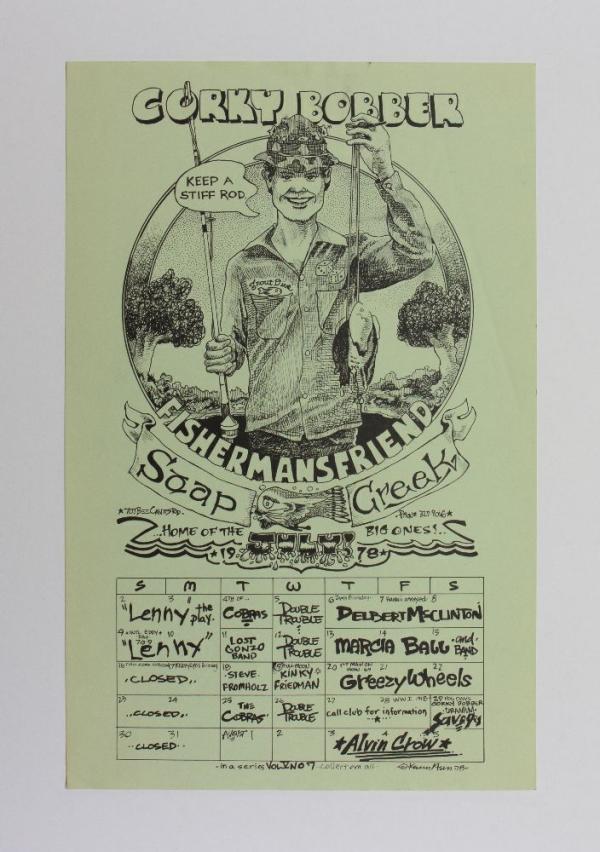 CORKY BOBBER
KEEP A
STIFF ROD
Trout Bum
FISHERMANSFRIEND
Soap Creek
...HOME OF THE BIG ONES!...
★19 JULY! 78★
S M T W T F S
2 3 4TH OF 5 6 7 8
"Lenny" the play. COBRAS DOUBLE TROUBLE DELBERT McCLINTON
9 10 11 12 13 14 15
"Lenny" LOST GONZO BAND DOUBLE TROUBLE MARCIA BALL and BAND
16 17 18 19 20 21 22
CLOSED.. STEVE FROMHOLZ KINKY FRIEDMAN GreezyWheels
23 24 25 26 27 28 29
..CLOSED.. THE COBRAS DOUBLE TROUBLE call club for information CORKY BOBBER Savages
30 31 August 1 2 3 4 5
..CLOSED.. ★Alvin Crow★
-in a series VOL V NO 7 -collect em all-